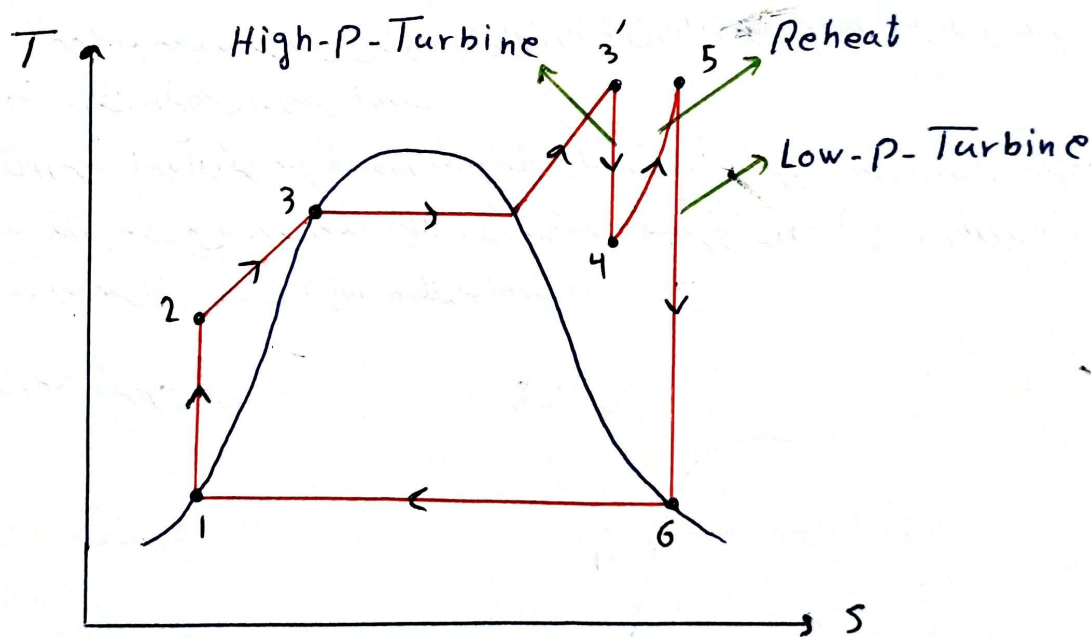 T
High-P-Turbine
3'
5
Reheat
Low-P-Turbine
3
4
2
1
6
S